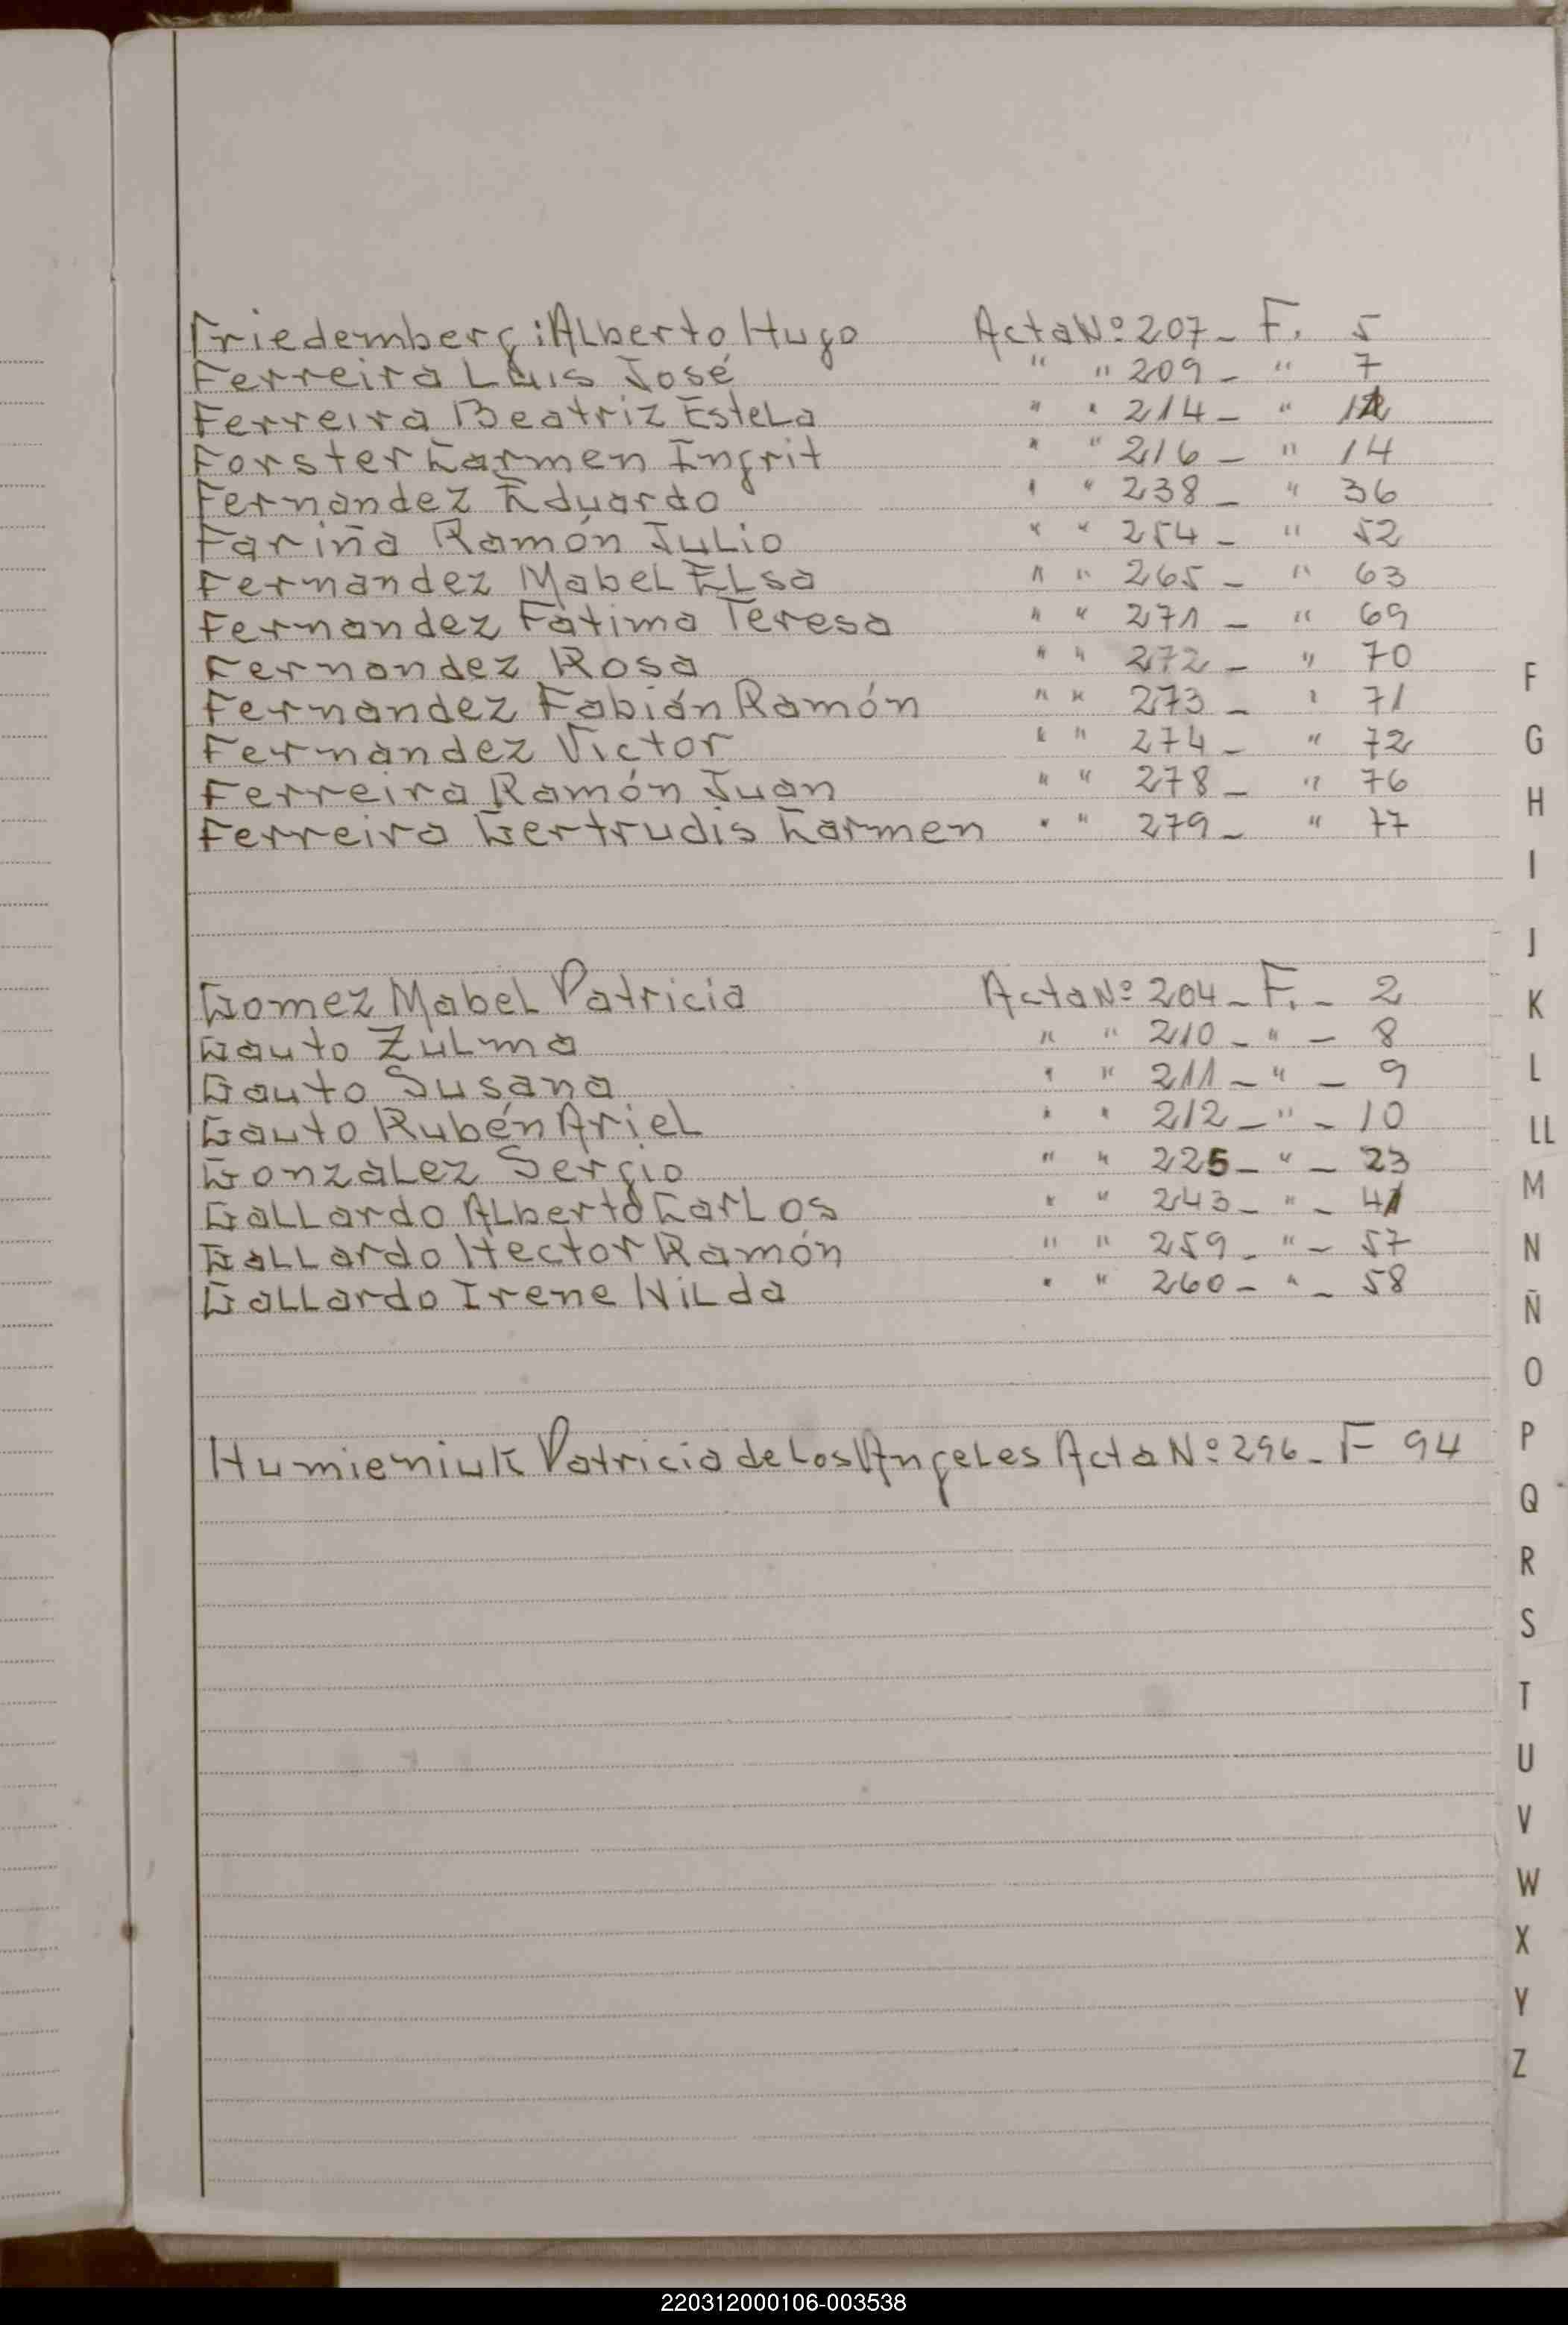 Friedemberg: Alberto Hugo Acta Nº 207 - F. 5
Ferreira Luis José " " 209 - " 7
Ferreira Beatriz Estela " " 214 - " 12
Forster Carmen Ingrit " " 216 - " 14
Fernandez Eduardo " " 238 - " 36
Fariña Ramón Julio " " 254 - " 52
Fernandez Mabel Elsa " " 265 - " 63
Fernandez Fátima Teresa " " 271 - " 69
Fernandez Rosa " " 272 - " 70
Fernandez Fabián Ramón " " 273 - " 71
Fernandez Victor " " 274 - " 72
Ferreira Ramón Juan " " 278 - " 76
Ferreira Gertrudis Carmen " " 279 - " 77
Gomez Mabel Patricia Acta Nº 204 - F. - 2
Gauto Zulma " " 210 - " - 8
Gauto Susana " " 211 - " - 9
Gauto Rubén Ariel " " 212 - " - 10
Gonzalez Sergio " " 225 - " - 23
Gallardo Alberto Carlos " " 243 - " - 41
Gallardo Hector Ramón " " 259 - " - 57
Gallardo Irene Nilda " " 260 - " - 58
Humieniuk Patricia de Los Angeles Acta Nº 296 - F 94
F
G
H
I
J
K
L
LL
M
N
Ñ
O
P
Q
R
S
T
U
V
W
X
Y
Z
220312000106-003538